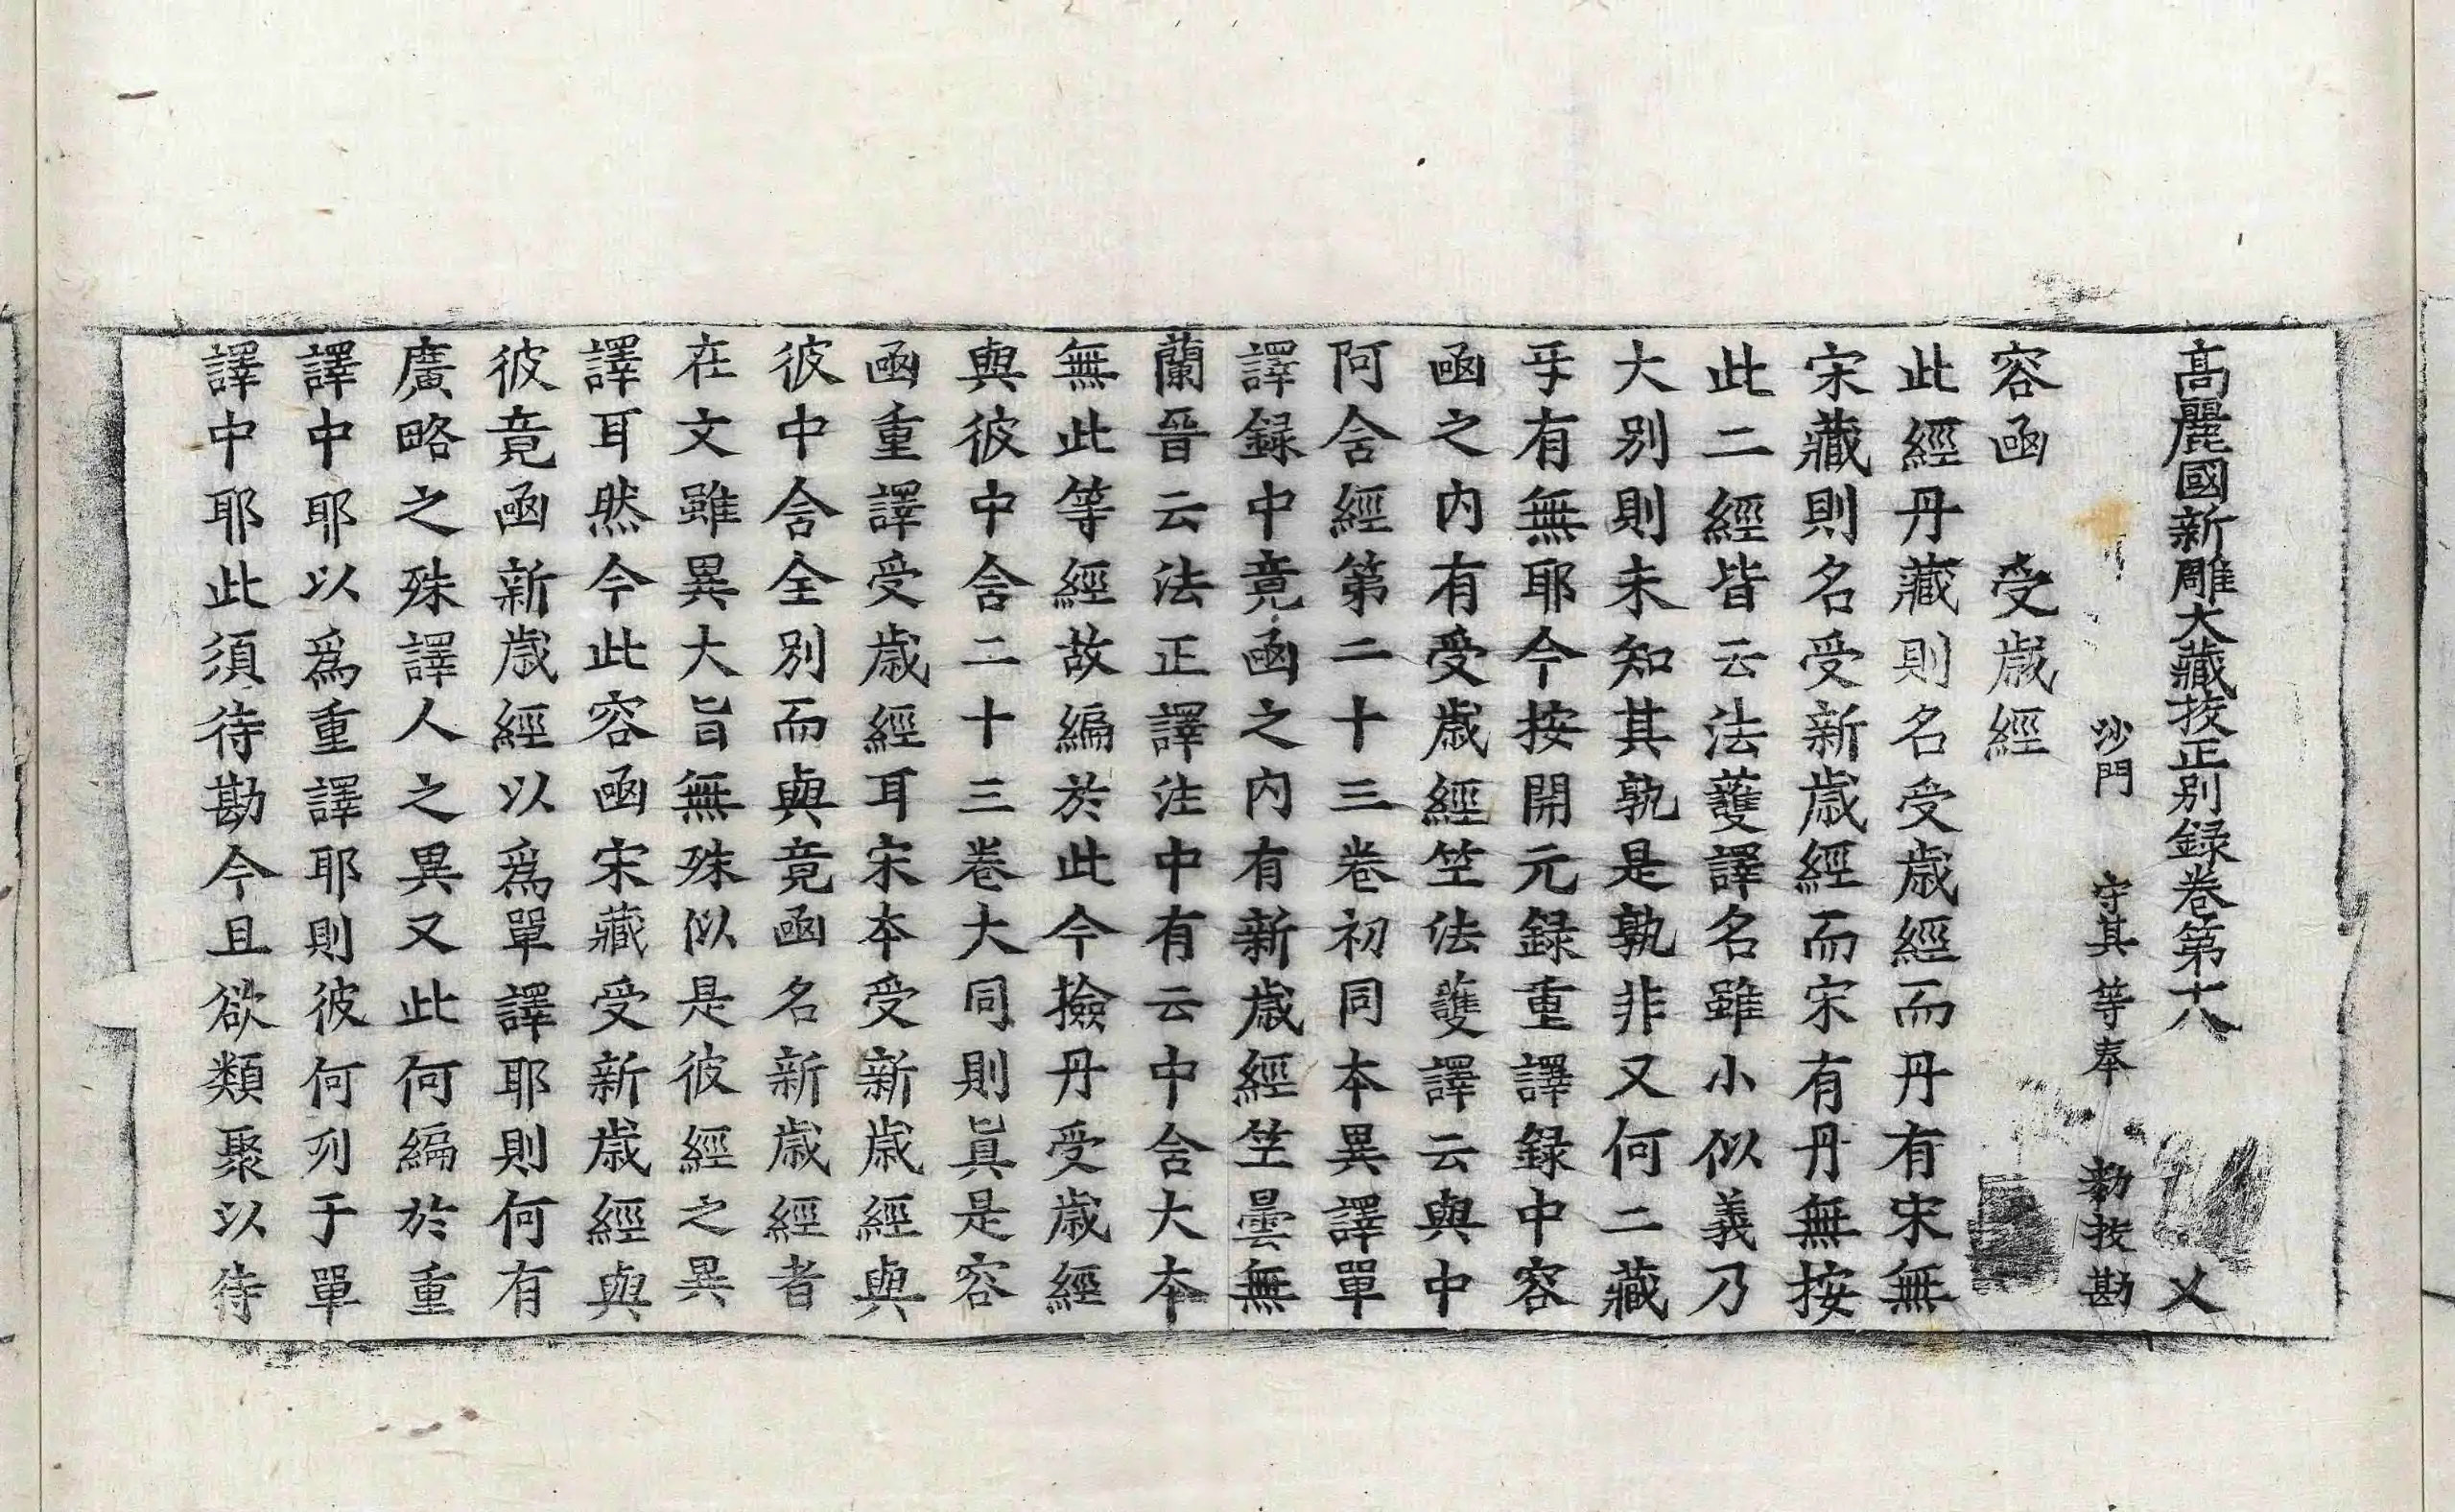 高麗國新雕大藏挍正別録卷第十八 乂
沙門 守其 等奉 勅挍勘
容函 受歲經
此經丹藏則名受歲經而丹有宋無
宋藏則名受新歲經而宋有丹無按
此二經皆云法護譯名雖小似義乃
大別則未知其孰是孰非又何二藏
㸦有無耶今按開元録重譯録中容
函之内有受歲經竺法護譯云與中
阿含經第二十三卷初同本異譯單
譯録中竟函之内有新歲經竺曇無
蘭晉云法正譯注中有云中含大本
無此等經故編於此今撿丹受歲經
與彼中含二十三卷大同則眞是容
函重譯受歲經耳宋本受新歲經與
彼中含全別而與竟函名新歲經者
在文雖異大旨無殊似是彼經之異
譯耳然今此容函宋藏受新歲經與
彼竟函新歲經以爲單譯耶則何有
廣略之殊譯人之異又此何編於重
譯中耶以爲重譯耶則彼何列于單
譯中耶此須待勘今且欲類聚以待